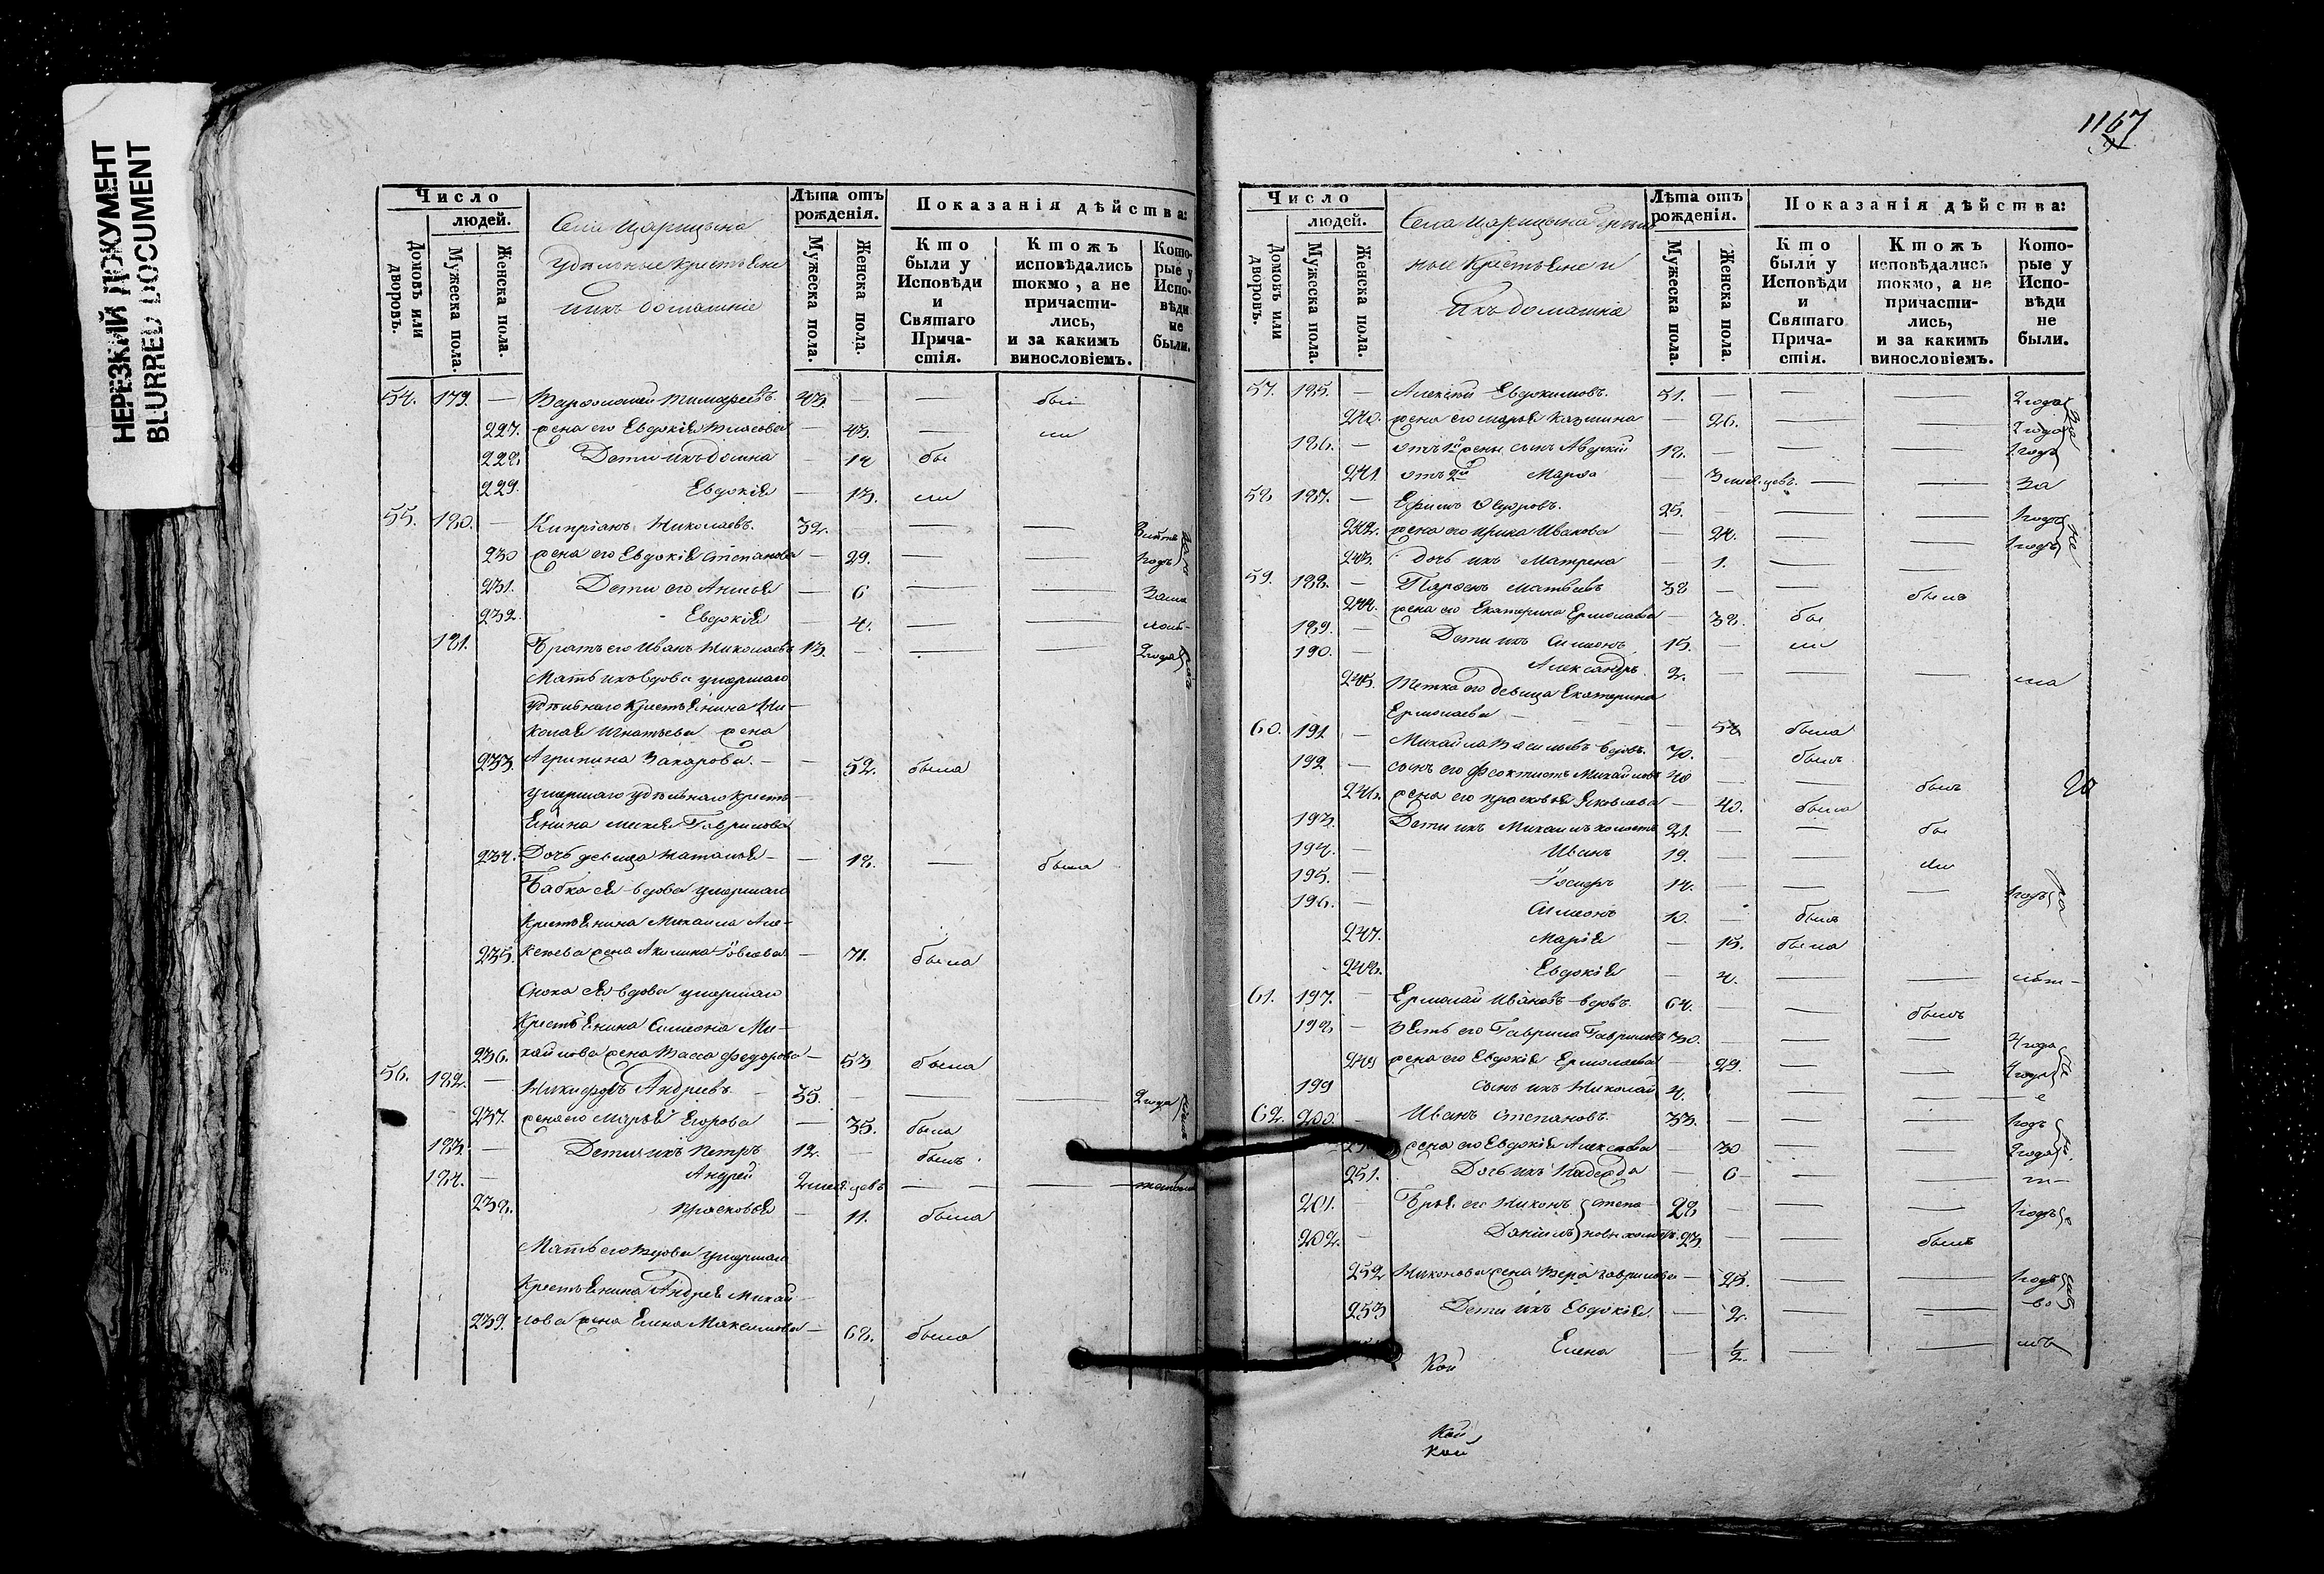 НЕРЕЗКИЙ ДОКУМЕНТ
BLURRED DOCUMENT
Число
людей.
Домовъ или дворовъ.
Мужеска пола.
Женска пола.
Села Царицына
удѣльные крестьяне
и ихъ домашніе
Лѣта отъ рожденія.
Мужеска пола.
Женска пола.
Показанія дѣйства:
Кто были у Исповѣди и Святаго Причастія.
Ктожъ исповѣдались токмо, а не причастились, и за какимъ винословіемъ.
Которые у Исповѣди не были.
54. 179. — Варѳоломей 43. — — бы
227. жена его Евдокія Власова — 43. — ли
228. Дети ихъ Домна — 18 бы
229. Евдокія — 13. ли
55. 180. — Кипріанъ Николаевъ. 32. — — —
230 жена его Евдокія Степанова — 29. — — 1годъ
231. Дети его Анисья — 6 — — За ма
232. Евдокія — 4. — —
181. Братъ его Иванъ Николаевъ 13. — — — 2года
Мать ихъ вдова умершаго
удѣльнаго крестьянина Ни-
колая Игнатьева жена
233. Агрипина Захарова. — — 52. была
умершаго удѣльнаго кресть-
янина Гаврилова
234. Дочь девица Наталья — — 18. — была
Бабка ея вдова умершаго
крестьянина Михаила Але-
235. ксеева жена Акилина Іовлева — 71. была
Сноха ея вдова умершаго
Крестьянина Симеона Ми-
236. хайлова жена Васса Федорова — 53 была
56. 182. — Никифоръ Андреевъ — 35. — — — 2года
237. жена его Марья Егорова — 35. была
183. — Дети ихъ Петръ 12. — былъ.
184. — Андрей 2 меся цевъ — — —
238. Прасковья — 11. была
Мать его вдова умершаго
Крестьянина Андрея Михай-
239. лова жена Елена Максимова — 68. была
1167
Число
людей.
Домовъ или дворовъ.
Мужеска пола.
Женска пола.
Села Царицына удѣль-
ные Крестьяне и
Ихъ домашніе
Лѣта отъ рожденія.
Мужеска пола.
Женска пола.
Показанія дѣйства:
Кто были у Исповѣди и Святаго Причастія.
Ктожъ исповѣдались токмо, а не причастились, и за какимъ винословіемъ.
Которые у Исповѣди не были.
57. 185. — Алексѣй Евдокимовъ. 51. — — — 2года
240. жена его Марья Казмина — 26. — — 2года
186. — отъ 1й жены сынъ Авдкий 18. — — — 1годъ
241 отъ 2й Марѳа — 3 мес. цевъ. — — За
58 187. — Ефимъ Ѳедоровъ. 25. — — — 1годъ
242. жена его Ирина Иванова — 24. — — 1годъ
243. дочь ихъ Матрена — 1. — —
59. 188. — Парѳенъ Матвѣевъ 38 — — былъ
244. жена его Екатерина Ермолаева — 38. бы
189. — Дети ихъ Симеонъ 15. — ли
190. — Александръ. 2. — — — ма
245. Тетка его девица Екатерина
Ермолаева — — — — 54 была
60. 191 — Михайла Васильевъ вдовъ. 70. — былъ
192. — сынъ его Феоктистъ Михайловъ 40 — — былъ
246. жена его Прасковья Яковлева — 40. была
193. Дети ихъ Михаилъ холостъ 21. — — бы
194. — Иванъ 19. — — ли
195. — Іосифъ 14. — — — 1годъ
196. — Симеонъ 10. — былъ
247. Марія — 15. была
248. Евдокія — 4. — —
61. 197. — Ермолай Ивановъ вдовъ. 64. — — былъ
198 — Зять его Гаврила Гавриловъ 30. — — — 4года
249 жена его Евдокія Ермолаева — 29. — — 4года
199 сынъ ихъ Николай 4. — — —
62. 200. — Иванъ Степановъ. 33. — — — 1годъ
жена его Евдокія Алексѣева — 30 — — 2года
251. Дочь ихъ Надежда — 6 — —
201. Братья его Никонъ Степа- 28 — — — 1годъ
202. — Даніилъ новы холостъ. 23. — — былъ
252 Никонова жена Вера Гаврилова — 25. — — 1годъ
253 Дети ихъ Евдокія — 2. — —
Елена — ½. — —
Кой
Кой
Кой